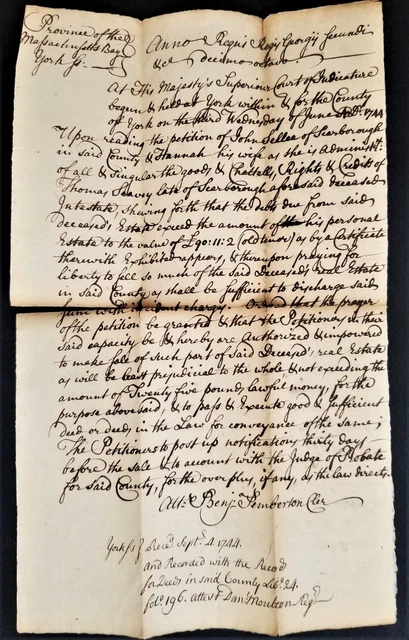 Province of the
Massachusetts Bay
York ss.
Anno Regni Regis Georgij Secundi
&c decimo octavo
At His Majesty's Superiour Court of Judicature
begun & held at York within & for the County
of York on the third Wednesday of June A.D. 1744
Upon reading the petition of John Sellea of Scarborough
in said County & Hannah his wife as she is Administ.x
of all & Singular the goods & Chattells, Rights & Credits of
Thomas Seavey late of Scarborough aforesaid deceased
Intestate, shewing forth that the debts due from said
Deceased's Estate exceed the amount of his personal
Estate to the value of £90:11:2 (old tenor) as by a Certificate
therewith Exhibited appears, & thereupon praying for
liberty to sell so much of the said deceased's real Estate
in said County as shall be sufficient to discharge said
sum with incident charges. Ordered that the prayer
of the petition be granted & that the Petitioners in their
said capacity be & hereby are Authorized & impowered
to make sale of such part of said Deceased's real Estate
as will be least prejudicial to the whole & not exceeding the
amount of Twenty five pounds lawful money, for the
purpose abovesaid, & to pass & Execute good & sufficient
deed or deeds in the Law for conveyance of the same;
The Petitioners to post up notifications thirty days
before the sale & to account with the Judge of Probate
for said County, for the over plus, if any, as the law directs.
Att. Benj. Pemberton Cler
York ss Rec.d Sept. 4 1744.
and Recorded with the Record
for Deeds in said County Lib.o 24.
fol.o 196. attest Dan.l Moulton Reg.r